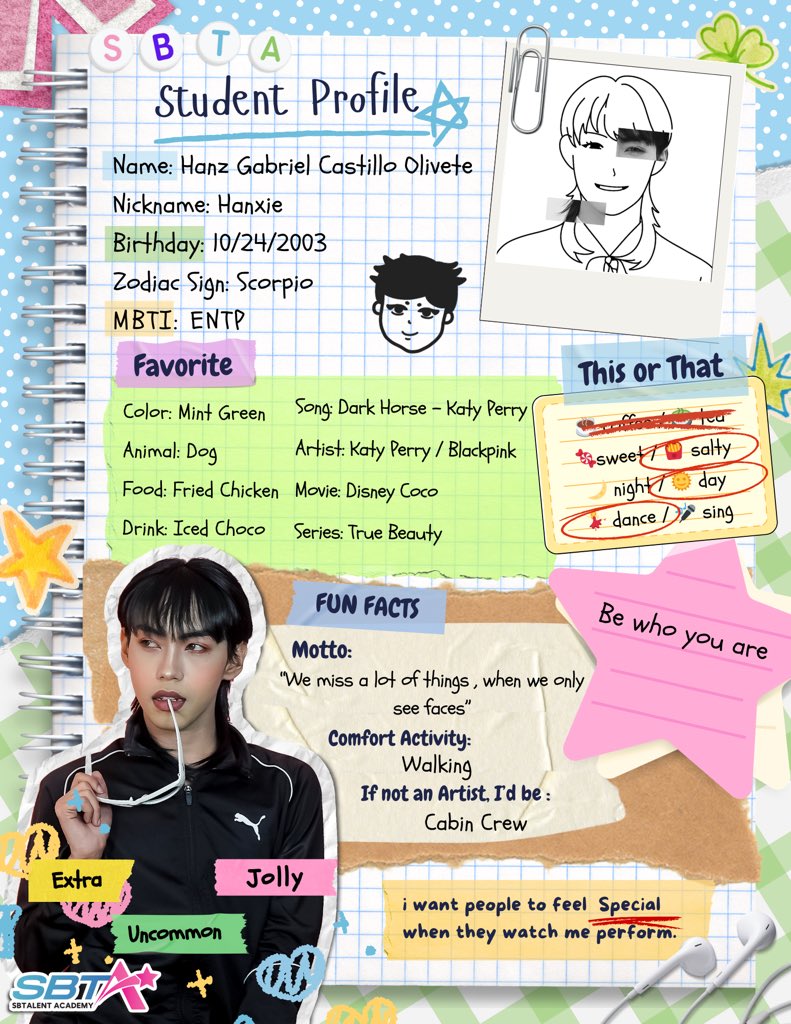 SBTA
Student Profile
Name: Hanz Gabriel Castillo Olivete
Nickname: Hanxie
Birthday: 10/24/2003
Zodiac Sign: Scorpio
MBTI: ENTP
Favorite
Color: Mint Green
Animal: Dog
Food: Fried Chicken
Drink: Iced Choco
Song: Dark Horse - Katy Perry
Artist: Katy Perry / Blackpink
Movie: Disney Coco
Series: True Beauty
This or That
coffee / tea
sweet / salty
night / day
dance / sing
FUN FACTS
Motto:
"We miss a lot of things , when we only
see faces"
Comfort Activity:
Walking
If not an Artist, I'd be :
Cabin Crew
Be who you are
Extra
Jolly
Uncommon
i want people to feel Special
when they watch me perform.
SBTA
SBTALENT ACADEMY